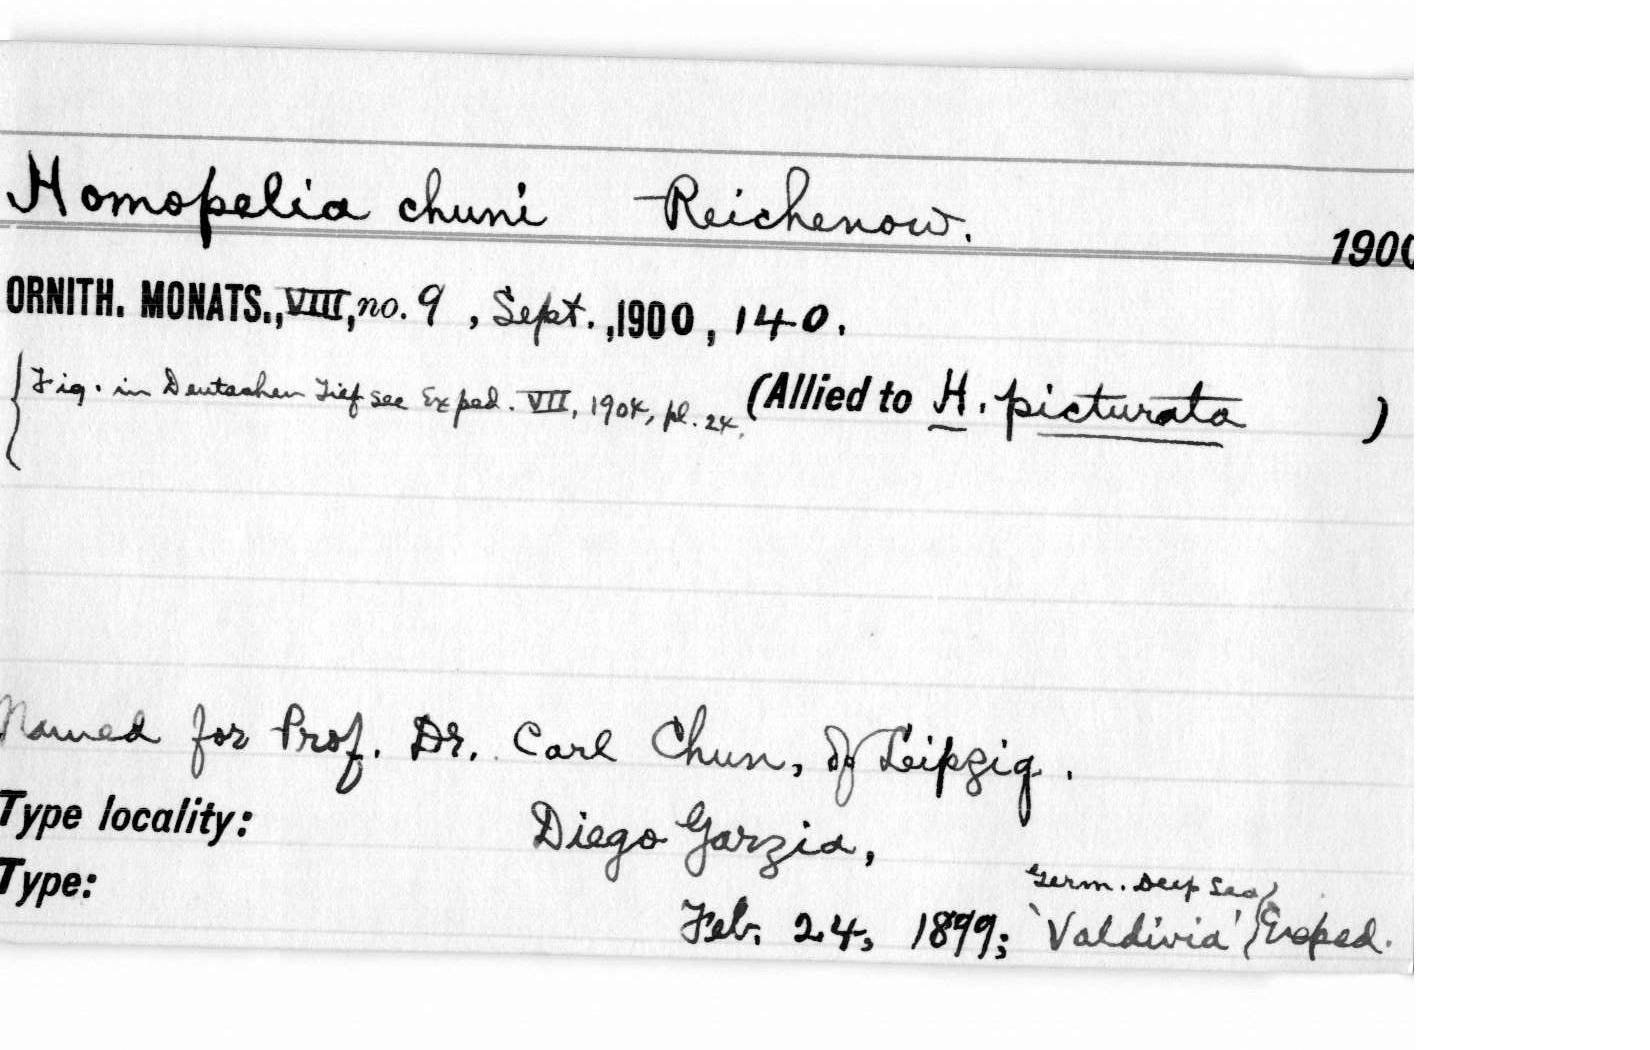 Homopelia chuni Reichenow.
1900
ORNITH. MONATS., VIII, no. 9, Sept., 1900, 140.
{Fig. in Deutschen Tiefsee Exped. VII, 1904, pl. 24. (Allied to H. picturata )
Named for Prof. Dr. Carl Chun, of Leipzig.
Type locality: Diego Garzia,
Type: Feb. 24, 1899; 'Valdivia' {Germ. Deep Sea} Exped.